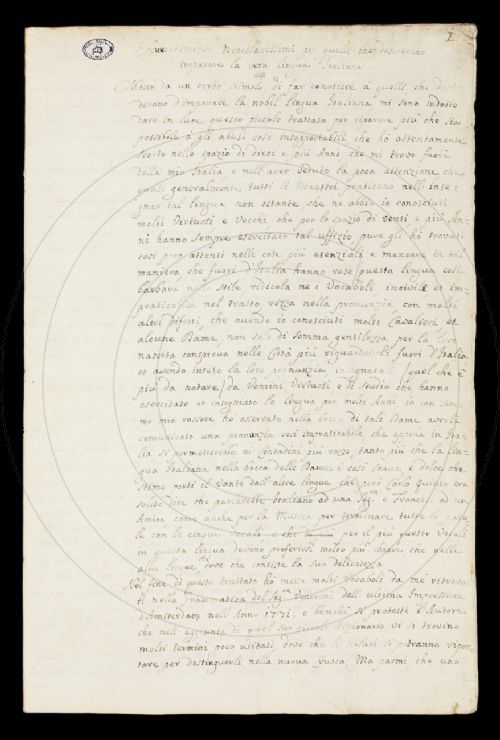 1
Avvertimenti Necessarissimi per quelli che desiderano
imparare la vera lingua Italiana
Mosso da un certo stimolo di far conoscere à quelli che desi-
derano d'imparare la nobil lingua Italiana mi sono indotto
dare in luce questo piccolo trattato per riparare più che sia
possibile à gli abusi così insopportabili che hò attentamente
scorto nello spazio di dieci e più Anni che mi trovo fuori
della mia Italia, e nell'aver veduto la poca attenzione che
quasi generalmente tutti li Maestri praticano nell'inse-
gnar tal lingua non ostante che ne abbia io conosciuti
molti Virtuosi e Vecchi che per lo spazio di venti e più An-
ni hanno sempre esercitato tal uffizio pure gli hò trovati
così poco attenti nelle cose più esenziali e mancare in tal
maniera che fuori d'Italia hanno reso questa lingua così
barbara nello Stile ridicola ne i Vocaboli incivile et im-
praticabile nel tratto rozza nella pronunzia con molti
altri difetti che avendo io conosciuti molti Cavalieri et
alcune Dame non solo di somma gentilezza per la loro
nascita conspicua nelle Città più riguardevoli fuori d'Italia
et avendo inteso la loro pronunzia insegnatali (quel che è
più da notare) da Uomini Virtuosi e di studio che hanno
esercitato et insegniato la lingua per molti Anni io con som-
mo mio rossore hò osservato nella bocca di tali Dame averli
comunicato una pronunzia così impraticabile che appena in Ita-
lia si permetterebbe ai Contadini più rozzi, tanto più che la lin-
gua Italiana nella bocca delle Dame è così soave, e dolce che
stimo porti il vanto dall'altre lingue che però Carlo Quinto era
solito dire che parlerebbe Italiano ad una Sig.ra e Francese ad un
Amico come anche per la Musica per terminare tutte le paro-
le con le cinque Vocali e che per il più queste Vocali
in questa lingua devono proferirsi molto più chiare che nelle
altre lingue dove che consiste la sua delicatezza
Nel fine di questo trattato hò messo molti Vocaboli da me ritrova-
ti nella Grammatica del Sig.r Veneroni dell'ultima Impressione
d'Amsterdam nell'Anno e benchè si protesti l'Autore
che nell'aggiunta di quel suo piccolo Dizionario vi si trovino
molti termini poco usitati, dove che li scolari si potranno rigor-
tare per distinguerli nella nuova Crusca, Ma parmi che una